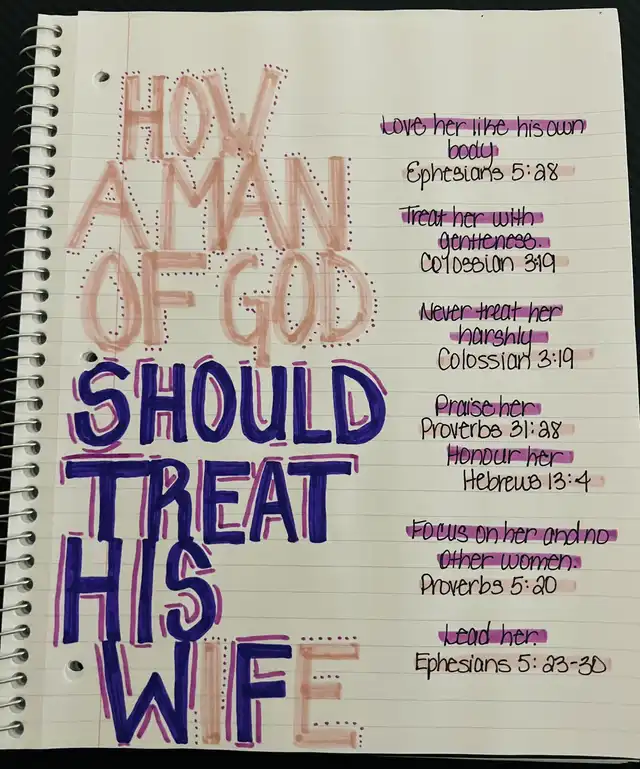 HOW
A MAN
OF GOD
SHOULD
TREAT
HIS
WIFE
Love her like his own
body
Ephesians 5:28
Treat her with
gentleness.
Colossian 3:19
Never treat her
harshly
Colossian 3:19
Praise her
Proverbs 31:28
Honour her
Hebrews 13:4
Focus on her and no
other women.
Proverbs 5:20
Lead her.
Ephesians 5:23-30